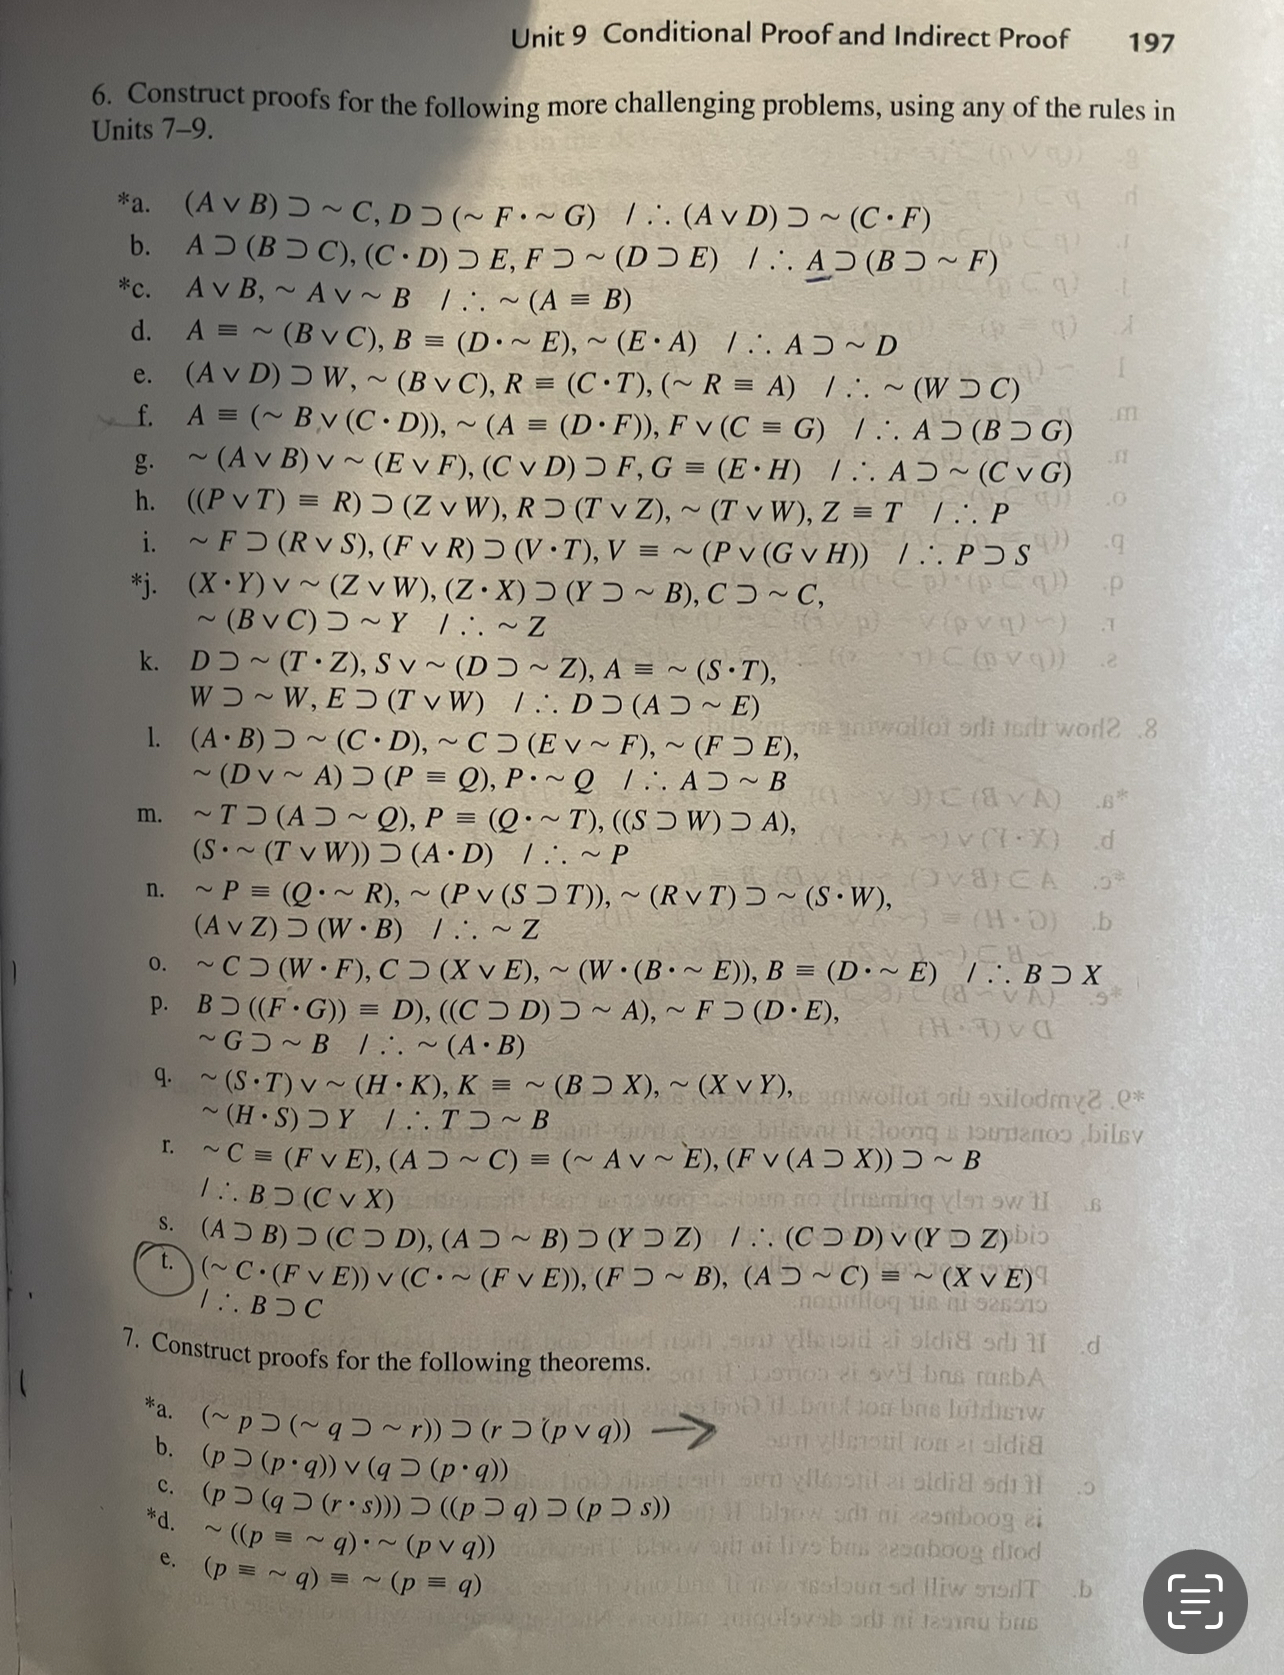 Unit 9 Conditional Proof and Indirect Proof 197
6. Construct proofs for the following more challenging problems, using any of the rules in
Units 7–9.
*a. (A ∨ B) ⊃ ~ C, D ⊃ (~ F · ~ G) / ∴ (A ∨ D) ⊃ ~ (C · F)
b. A ⊃ (B ⊃ C), (C · D) ⊃ E, F ⊃ ~ (D ⊃ E) / ∴ A ⊃ (B ⊃ ~ F)
*c. A ∨ B, ~ A ∨ ~ B / ∴ ~ (A ≡ B)
d. A ≡ ~ (B ∨ C), B ≡ (D · ~ E), ~ (E · A) / ∴ A ⊃ ~ D
e. (A ∨ D) ⊃ W, ~ (B ∨ C), R ≡ (C · T), (~ R ≡ A) / ∴ ~ (W ⊃ C)
f. A ≡ (~ B ∨ (C · D)), ~ (A ≡ (D · F)), F ∨ (C ≡ G) / ∴ A ⊃ (B ⊃ G)
g. ~ (A ∨ B) ∨ ~ (E ∨ F), (C ∨ D) ⊃ F, G ≡ (E · H) / ∴ A ⊃ ~ (C ∨ G)
h. ((P ∨ T) ≡ R) ⊃ (Z ∨ W), R ⊃ (T ∨ Z), ~ (T ∨ W), Z ≡ T / ∴ P
i. ~ F ⊃ (R ∨ S), (F ∨ R) ⊃ (V · T), V ≡ ~ (P ∨ (G ∨ H)) / ∴ P ⊃ S
*j. (X · Y) ∨ ~ (Z ∨ W), (Z · X) ⊃ (Y ⊃ ~ B), C ⊃ ~ C,
~ (B ∨ C) ⊃ ~ Y / ∴ ~ Z
k. D ⊃ ~ (T · Z), S ∨ ~ (D ⊃ ~ Z), A ≡ ~ (S · T),
W ⊃ ~ W, E ⊃ (T ∨ W) / ∴ D ⊃ (A ⊃ ~ E)
l. (A · B) ⊃ ~ (C · D), ~ C ⊃ (E ∨ ~ F), ~ (F ⊃ E),
~ (D ∨ ~ A) ⊃ (P ≡ Q), P · ~ Q / ∴ A ⊃ ~ B
m. ~ T ⊃ (A ⊃ ~ Q), P ≡ (Q · ~ T), ((S ⊃ W) ⊃ A),
(S · ~ (T ∨ W)) ⊃ (A · D) / ∴ ~ P
n. ~ P ≡ (Q · ~ R), ~ (P ∨ (S ⊃ T)), ~ (R ∨ T) ⊃ ~ (S · W),
(A ∨ Z) ⊃ (W · B) / ∴ ~ Z
o. ~ C ⊃ (W · F), C ⊃ (X ∨ E), ~ (W · (B · ~ E)), B ≡ (D · ~ E) / ∴ B ⊃ X
p. B ⊃ ((F · G)) ≡ D), ((C ⊃ D) ⊃ ~ A), ~ F ⊃ (D · E),
~ G ⊃ ~ B / ∴ ~ (A · B)
q. ~ (S · T) ∨ ~ (H · K), K ≡ ~ (B ⊃ X), ~ (X ∨ Y),
~ (H · S) ⊃ Y / ∴ T ⊃ ~ B
r. ~ C ≡ (F ∨ E), (A ⊃ ~ C) ≡ (~ A ∨ ~ E), (F ∨ (A ⊃ X)) ⊃ ~ B
/ ∴ B ⊃ (C ∨ X)
s. (A ⊃ B) ⊃ (C ⊃ D), (A ⊃ ~ B) ⊃ (Y ⊃ Z) / ∴ (C ⊃ D) ∨ (Y ⊃ Z)
t. (~ C · (F ∨ E)) ∨ (C · ~ (F ∨ E)), (F ⊃ ~ B), (A ⊃ ~ C) ≡ ~ (X ∨ E)
/ ∴ B ⊃ C
7. Construct proofs for the following theorems.
*a. (~ p ⊃ (~ q ⊃ ~ r)) ⊃ (r ⊃ (p ∨ q))
b. (p ⊃ (p · q)) ∨ (q ⊃ (p · q))
c. (p ⊃ (q ⊃ (r · s))) ⊃ ((p ⊃ q) ⊃ (p ⊃ s))
*d. ~ ((p ≡ ~ q) · ~ (p ∨ q))
e. (p ≡ ~ q) ≡ ~ (p ≡ q)